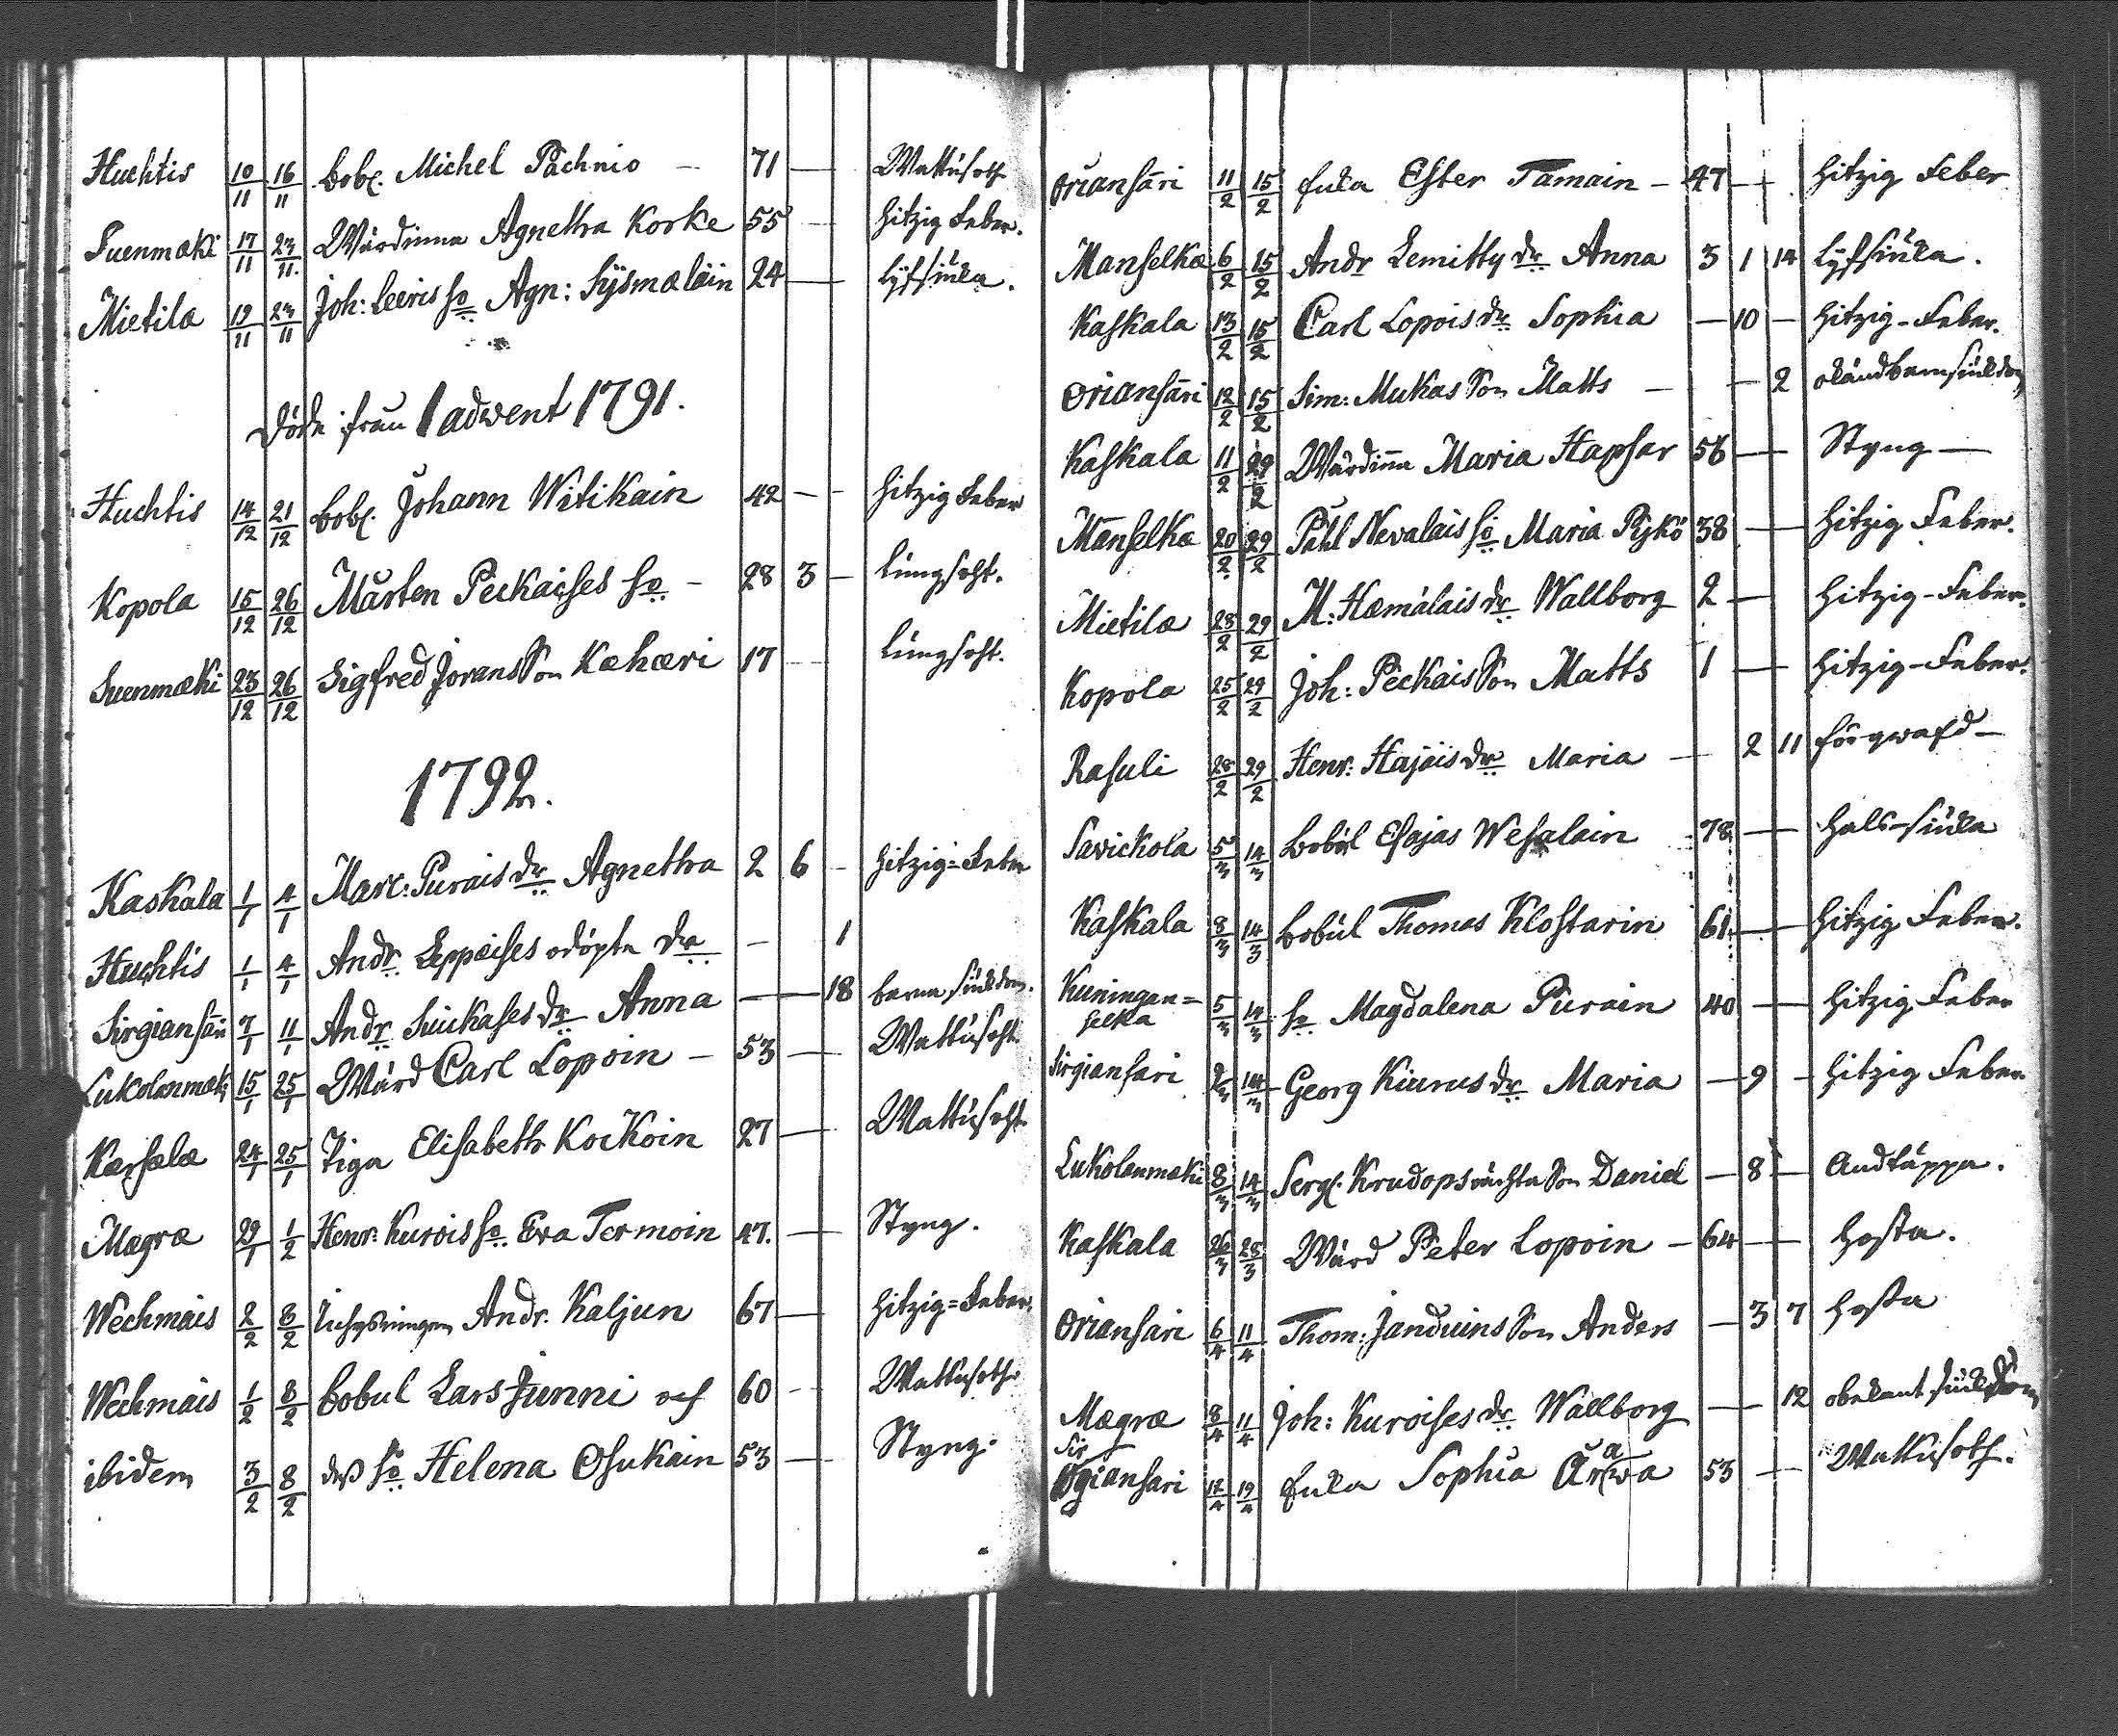 Huchtis 10/11 16/11 bob. Michel Pächnio — 71 — Wattusoth
Suenmæki 17/11 23/11. Wärdinna Agnetha Korke 55 — hitzig Feber.
Mietilæ 19/11 23/11 Joh: Leeris ho Agn: Sysmæläin 24 — Lyfsiuka.
Döde ifrån 1 advent 1791.
Huchtis 14/12 21/12 bob. Johann Witikain 42 — — hitzig Feber
Kopola 15/12 26/12 Mårten Peckaises ho — 28 3 — Lungsoht.
Suenmæki 23/12 26/12 Sigfred Jorans Son Kæhæri 17 — Lungsoht.
1792.
Kaskala 1/1 4/1 Marc: Purais dr Agnetha 2 6 — hitzig=Feber
Huchtis 1/1 4/1 Andr. Leppæises odöpta dr — 1
Sirgiansari 7/1 11/1 Andr. Suikases dr Anna — — 18 barnsiukdom.
Lukolanmæki 15/1 25/1 Wärd Carl Lopoin — 53 — Wattusoht
Kærsælæ 24/1 25/1 Piga Elisabeth Kockoin 27 — Wattusoht
Mægræ 29/1 1/2 Henr: Kurois ho Eva Termoin 47. — Styng.
Wechmais 2/2 8/2 Andr. Kaljun 67 — hitzig=Feber.
Wechmais 1/2 8/2 bobul Lars Junni och 60 — Wattusoth
ibidem 3/2 8/2 dess ho Helena Osukain 53 — Styng.
Oriansäri 11/2 15/2 Enka Ester Tamain — 47 — hitzig Feber
Manselkæ 6/2 15/2 Andr Lemitty dr Anna 3 1 14 Lyfsiuka.
Kaskala 13/2 15/2 Carl Lopois dr Sophia — 10 — hitzig-Feber.
Oriansäri 12/2 15/2 Sim: Mukas Son Matts — — 2 okänd barnsiukdom
Kaskala 11/2 29/2 Wärdinna Maria Hapsar 56 — Styng —
Mänselkæ 20/2 29/2 Påhl Nevalais ho Maria Pykö 38 — hitzig Feber.
Mietilæ 28/2 29/2 M: Hæmälais dr Wallborg 2 — hitzig-Feber.
Kopola 25/2 29/2 Joh: Peckais Son Matts 1 — hitzig-Feber.
Rasuli 28/2 29/2 Henr: Hajois dr Maria — 2 11 förqwafd —
Savickola 5/3 14/3 bobul Esajas Wesalain 78 — hals-siuka
Kaskala 8/3 14/3 bobul Thomas Klostarin 61 — hitzig Feber.
Kuningan=
selka 5/3 14/3 ho Magdalena Purain 40 — hitzig Feber
Sirgiansari 2/3 14/3 Georg Kiurus dr Maria — 9 — hitzig Feber.
Lukolanmæki 8/3 14/3 Serg. Krudopswachta Son Daniel — 8 — Andtäppa.
Kaskala 26/3 28/3 Wärd Peter Lopoin — 64 — hosta.
Oriansari 6/4 11/4 Thom: Janduins Son Anders — 3 7 hosta
Mægræ 8/4 11/4 Joh: Kuroises dr Wallborg — 12 obekant siukdom
Sirgiansari 17/4 19/4 Enka Sophia 53 — Wattusoth.